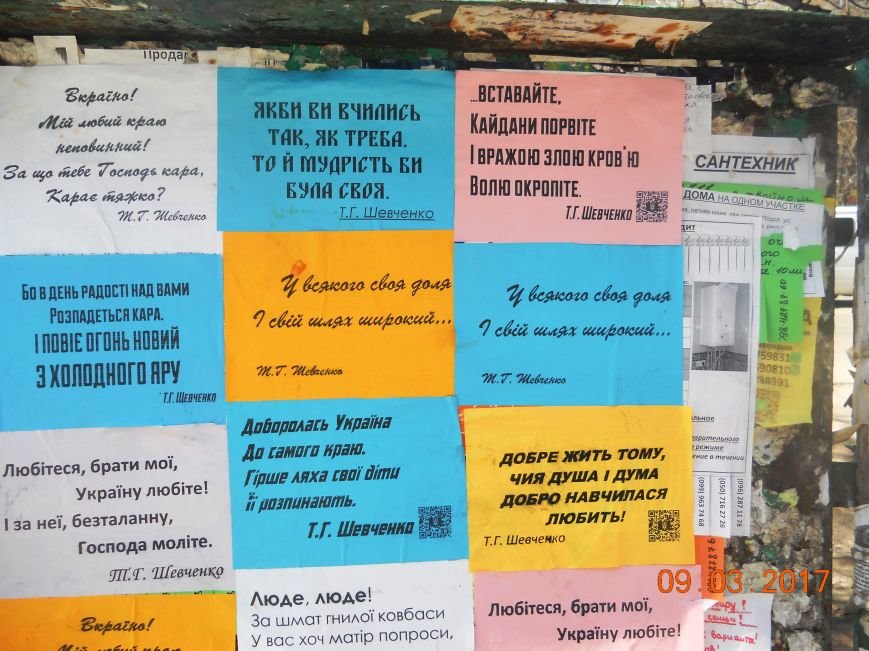 Продаг
Вкраїно!
Мій любий краю
неповинний!
За що тебе Господь кара,
Карає тяжко?
Т.Г. Шевченко
ЯКБИ ВИ ВЧИЛИСЬ
ТАК, ЯК ТРЕБА.
ТО Й МУДРІСТЬ БИ
БУЛА СВОЯ.
Т.Г. Шевченко
...ВСТАВАЙТЕ,
КАЙДАНИ ПОРВІТЕ
І ВРАЖОЮ ЗЛОЮ КРОВ'Ю
ВОЛЮ ОКРОПІТЕ.
Т.Г. ШЕВЧЕНКО
БО В ДЕНЬ РАДОСТІ НАД ВАМИ
РОЗПАДЕТЬСЯ КАРА.
І ПОВІЄ ОГОНЬ НОВИЙ
З ХОЛОДНОГО ЯРУ
Т.Г. ШЕВЧЕНКО
У всякого своя доля
І свій шлях широкий...
Т.Г. Шевченко
У всякого своя доля
І свій шлях широкий...
Т.Г. Шевченко
Любітеся, брати мої,
Україну любіте!
І за неї, безталанну,
Господа моліте.
Т.Г. Шевченко
Доборолась Україна
До самого краю.
Гірше ляха свої діти
її розпинають.
Т.Г. Шевченко
ДОБРЕ ЖИТЬ ТОМУ,
ЧИЯ ДУША І ДУМА
ДОБРО НАВЧИЛАСЯ
ЛЮБИТЬ!
Т.Г. Шевченко
Вкраїно!
Мій любий краю
Люде, люде!
За шмат гнилої ковбаси
У вас хоч матір попроси,
Любітеся, брати мої,
Україну любіте!
САНТЕХНИК
ДОМА НА ОДНОМ УЧАСТКЕ
Подол, ул.
дит
59831
90810
38391
режиме
ение в течении
(099) 963 74 68
(050) 716 27 26
(096) 287 11 78
варианта!
09.03.2017